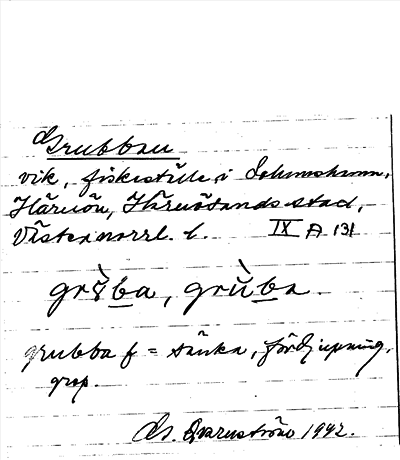 Grubban
vik, fiskeställe i Solumshamn,
Härnön, Härnösands stad,
Västernorrl. l. IX A 131
grùba, grùba.
grubba f = sänka, fördjupning,
grop.
G. Qvarnström 1942.